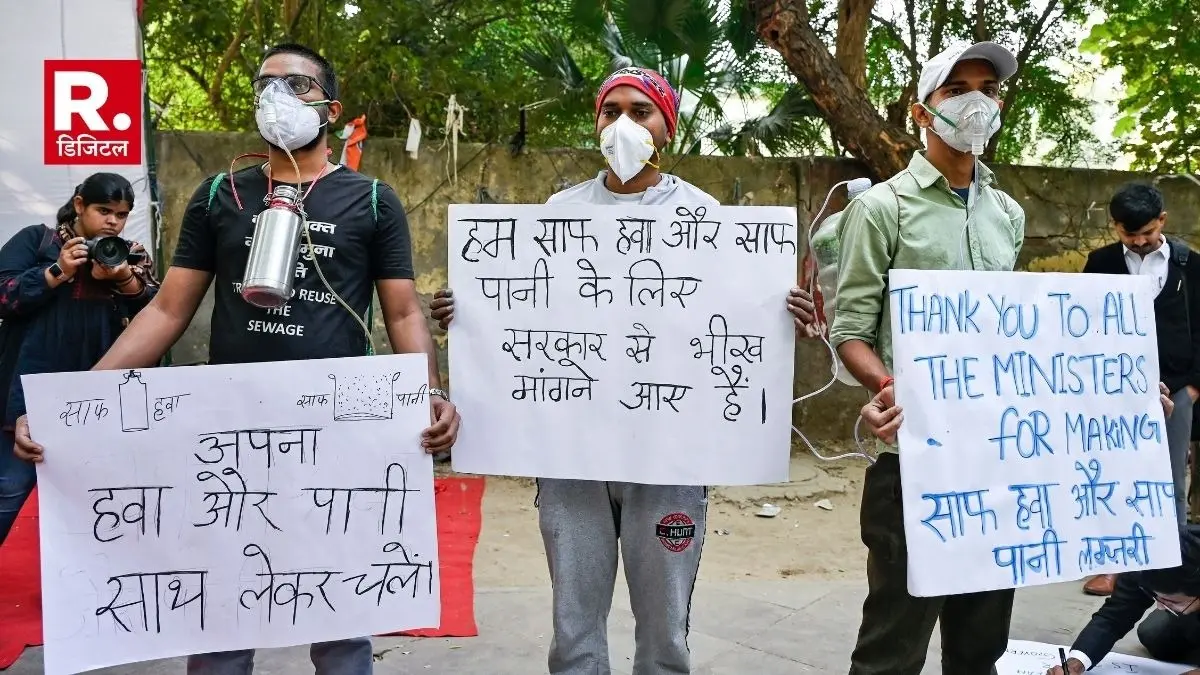 R.
डिजिटल
साफ हवा
साफ पानी
अपना
हवा और पानी
साथ लेकर चलें।
REUSE
THE
SEWAGE
हम साफ हवा और साफ
पानी के लिए
सरकार से भीख
मांगने आए हैं।
C. HUNT
THANK YOU TO ALL
THE MINISTERS
FOR MAKING
साफ हवा और साफ
पानी लग्जरी